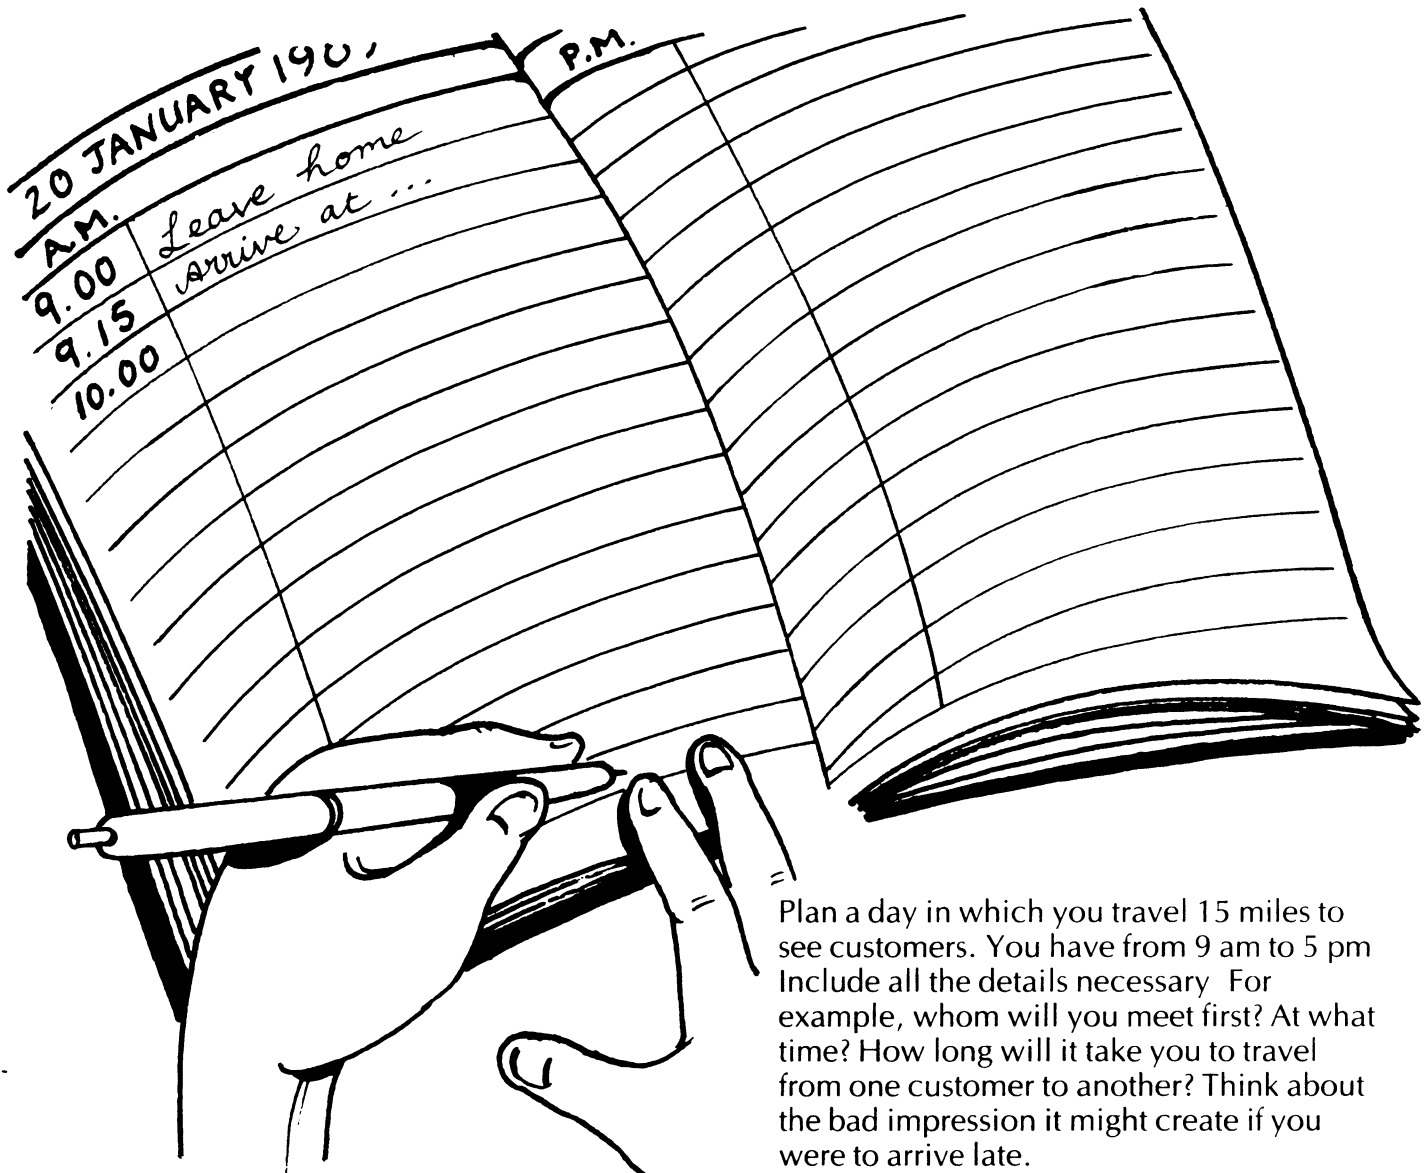 20 JANUARY
A.M.
9.00 Leave home
9.15 Arrive at ...
10.00
P.M.
Plan a day in which you travel 15 miles to
see customers. You have from 9 am to 5 pm
Include all the details necessary For
example, whom will you meet first? At what
time? How long will it take you to travel
from one customer to another? Think about
the bad impression it might create if you
were to arrive late.